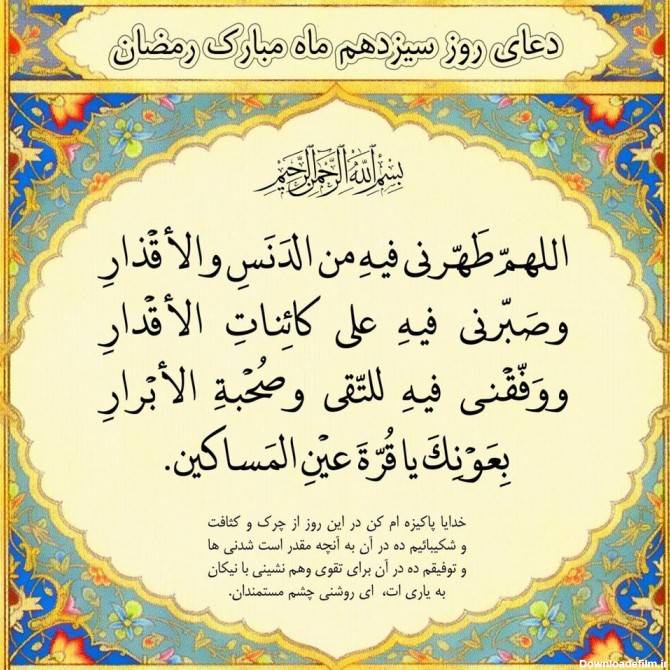 دعای روز سیزدهم ماه مبارک رمضان
بِسْمِ ٱللَّهِ ٱلرَّحْمَٰنِ ٱلرَّحِيمِ
اللهمّ طَهّرنی فیهِ من الدَنَسِ والأقْذارِ
وصَبّرنی فیهِ علی کائِناتِ الأقْدارِ
ووَفّقْنی فیهِ للتّقی وصُحْبةِ الأبْرارِ
بِعَوْنِكَ یا قُرّةَ عیْنِ المَساکین.
خدایا پاکیزه ام کن در این روز از چرک و کثافت
و شکیبائیم ده در آن به آنچه مقدر است شدنی ها
و توفیقم ده در آن برای تقوی وهم نشینی با نیکان
به یاری ات، ای روشنی چشم مستمندان.
Downloadefilm.ir